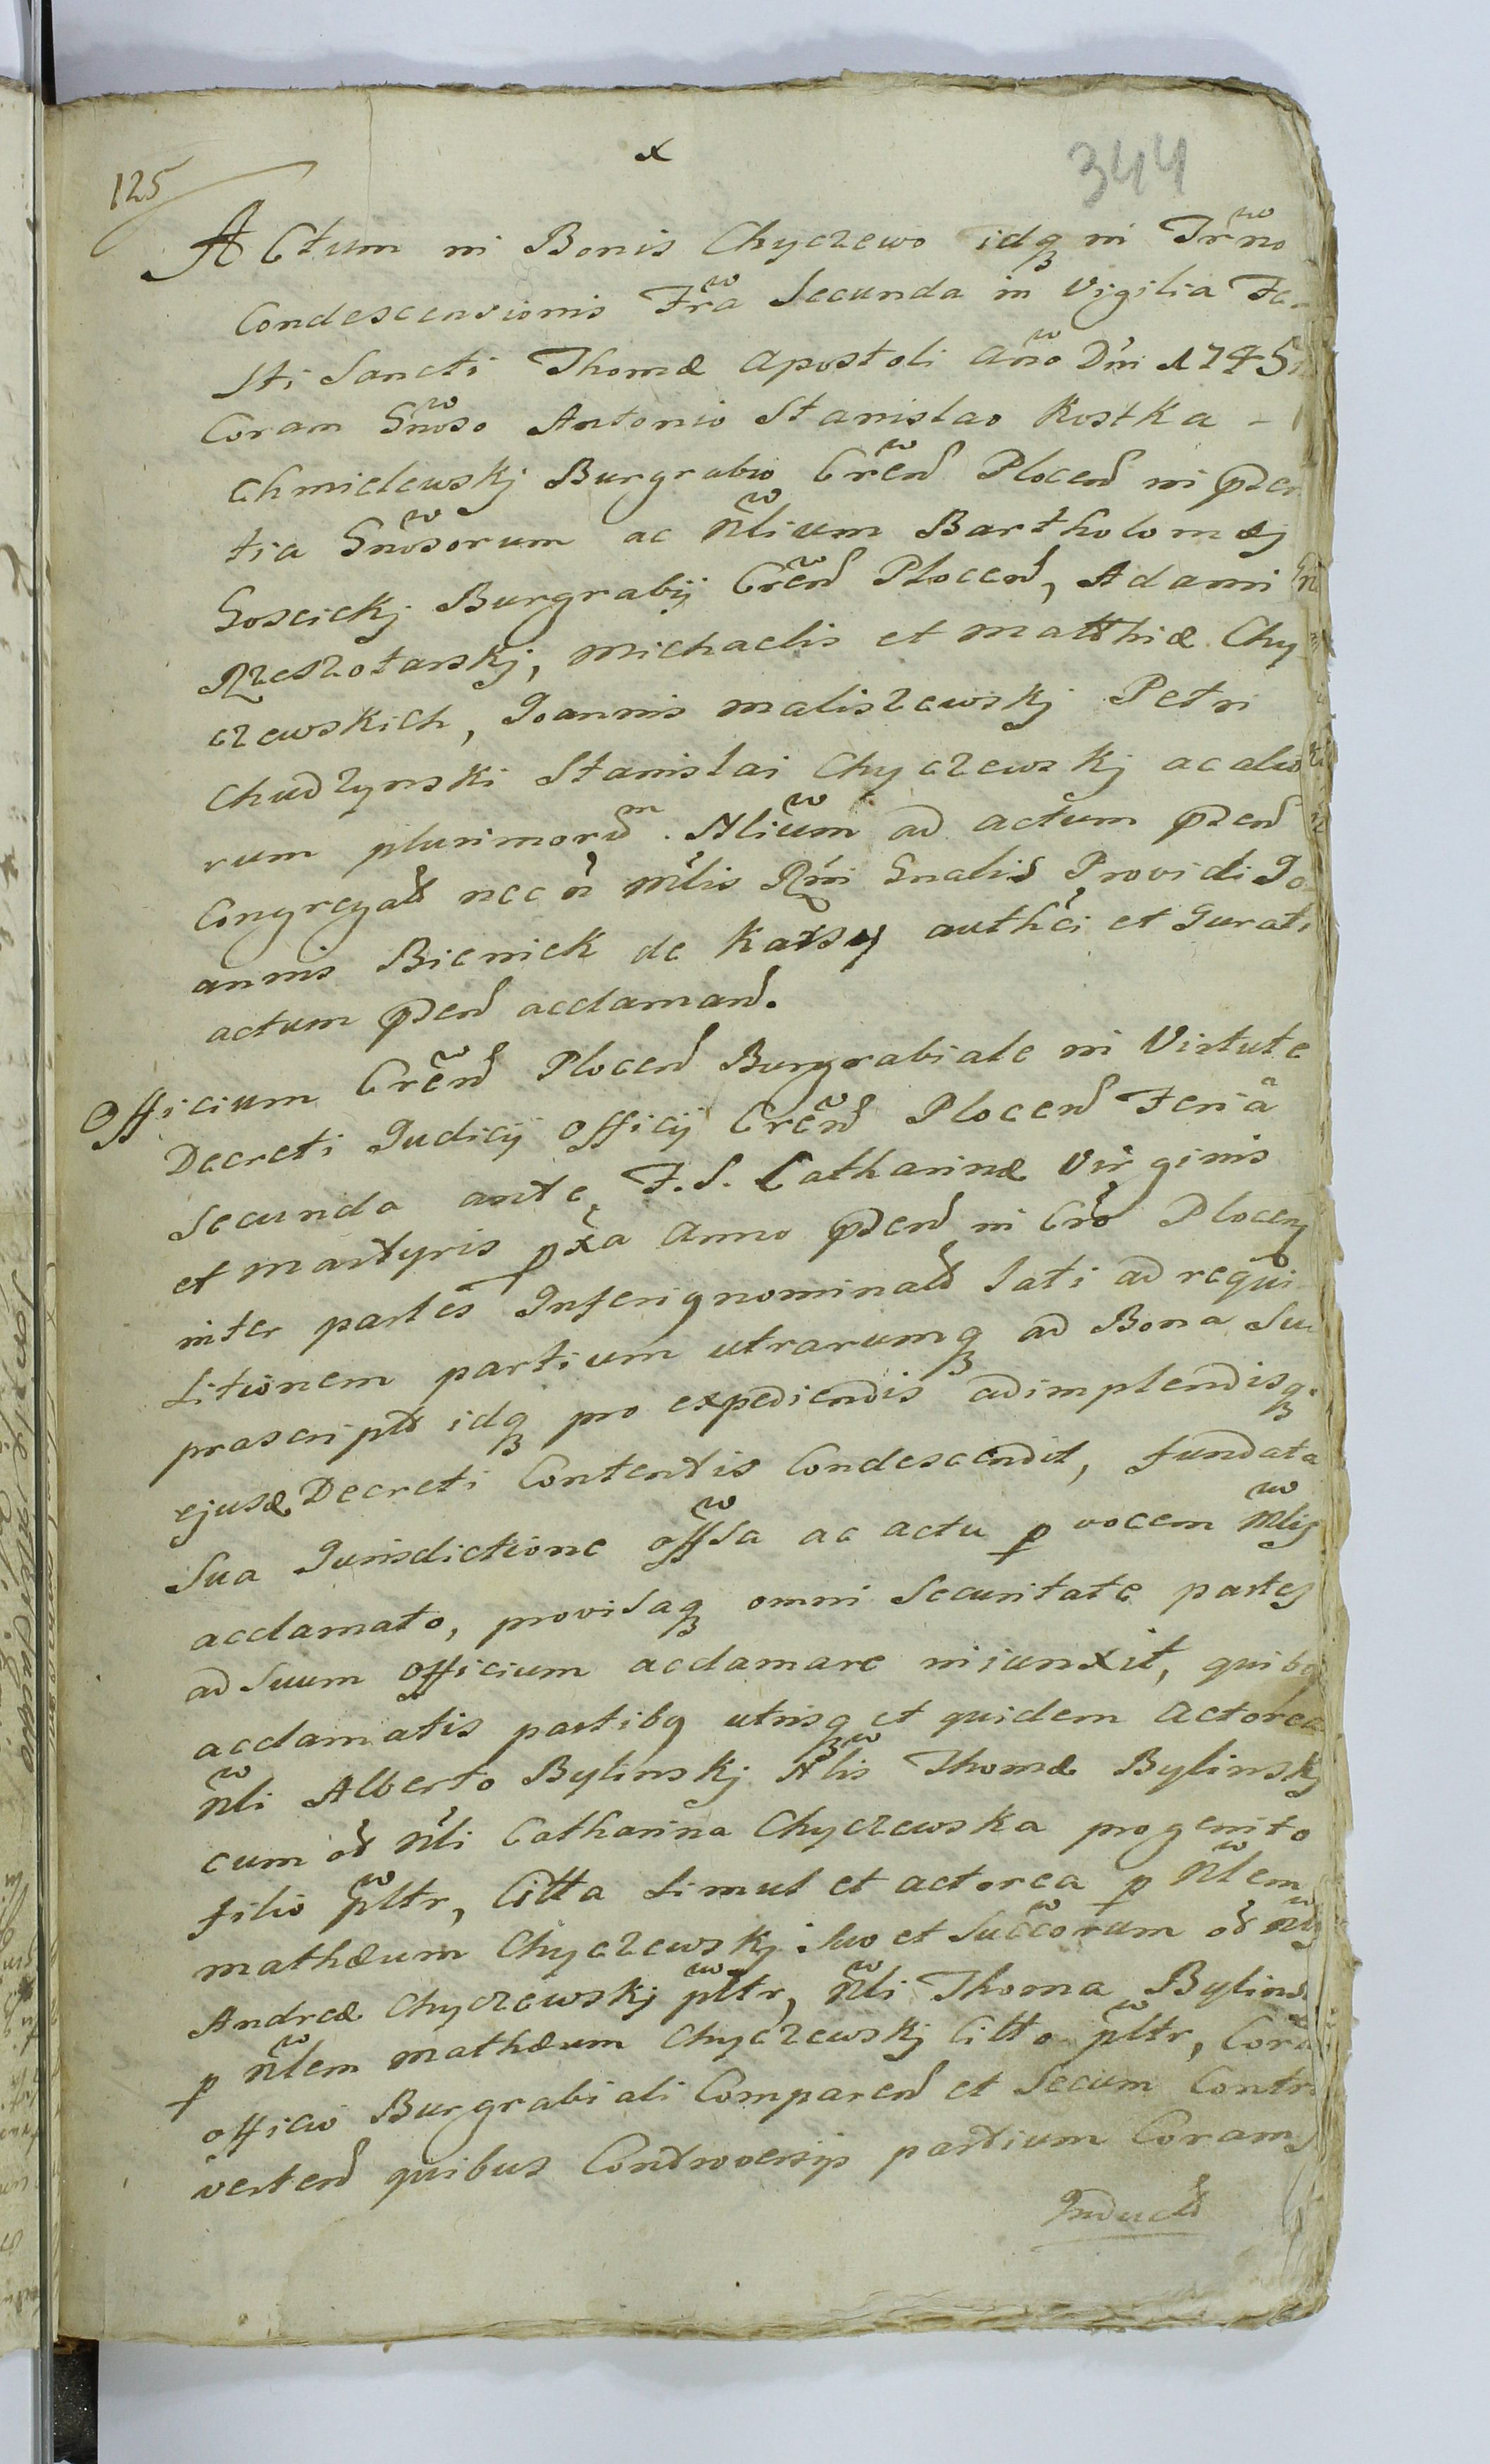 x
344
125
ACtum in Bonis Chyczewo idq in Trno
Condescensionis Fra Secunda in Vigilia Fe-
sti Sancti Thomæ Apostoli Ano Dni 1745
Coram Gnoso Antonio Stanislao Kostka -
Chmielewskj Burgrabio Cren Plocen in pnen
tia Gnosorum ac Nlium Bartholomæj
Goscickj Burgrabij Cren Plocen, Adami
Rzeszotarskj, Michaelis et Matthiæ Chy-
czewskich, Joannis Maliszewskj Petri
Chudzynski Stanislai Chyczewskj ac alio
rum plurimorum. Nlium ad actum pnen
Congregat nec n Mlis Rni Gnalis Providi Jo
annis Bieniek de Karsy authci et Jurati
actum pnen acclaman.
Officium Cren Plocen Burgrabiale in Virtute
Decreti Judicij Officij Cren Plocen Feriâ
Secunda ante F. S. Catharinæ Virginis
et Martyris pxa Anno pnen in Cro Plocen
inter partes Inferignominat lati ad requi-
sitionem partium utrarumq ad Bona Su
prascript idq pro expediendis adimplendisq
ejusd Decreti Contentis Condescendit, fundata
Sua Jurisdictione offsa ac actu p vocem Mlis
acclamato, provisaq omni Securitate partes
ad Suum Officium acclamare iniunxit, quibq
acclamatis partibq utrisq et quidem Actorea
Nli Alberto Bylinskj Nlis Thomæ Bylinskj
cum od Nli Catharina Chyczewska progenito
filio pltr, Citta simul et actorea p Nlem
Mathæum Chyczewskj Suo et Succorum od Nlis
Andreæ Chyczewskj pltr, Nli Thoma Bylins
p Nlem Mathæum Chyczewskj Citto pltr, Cora
officio Burgrabiali Comparen et Secum Contro
verten quibus Controversijs partium Coram
Induct